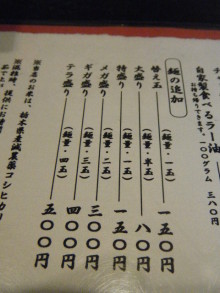 自家製食べるラー油
お持ち帰りできます。一〇〇グラム 三八〇円
麺の追加
替え玉 (麺量・一玉) 一五〇円
大盛り (麺量・半玉) 八〇円
特盛り (麺量・一玉) 一五〇円
メガ盛り (麺量・二玉) 三〇〇円
ギガ盛り (麺量・三玉) 四〇〇円
テラ盛り (麺量・四玉) 五〇〇円
※当店のお米は、栃木県産減農薬コシヒカリ